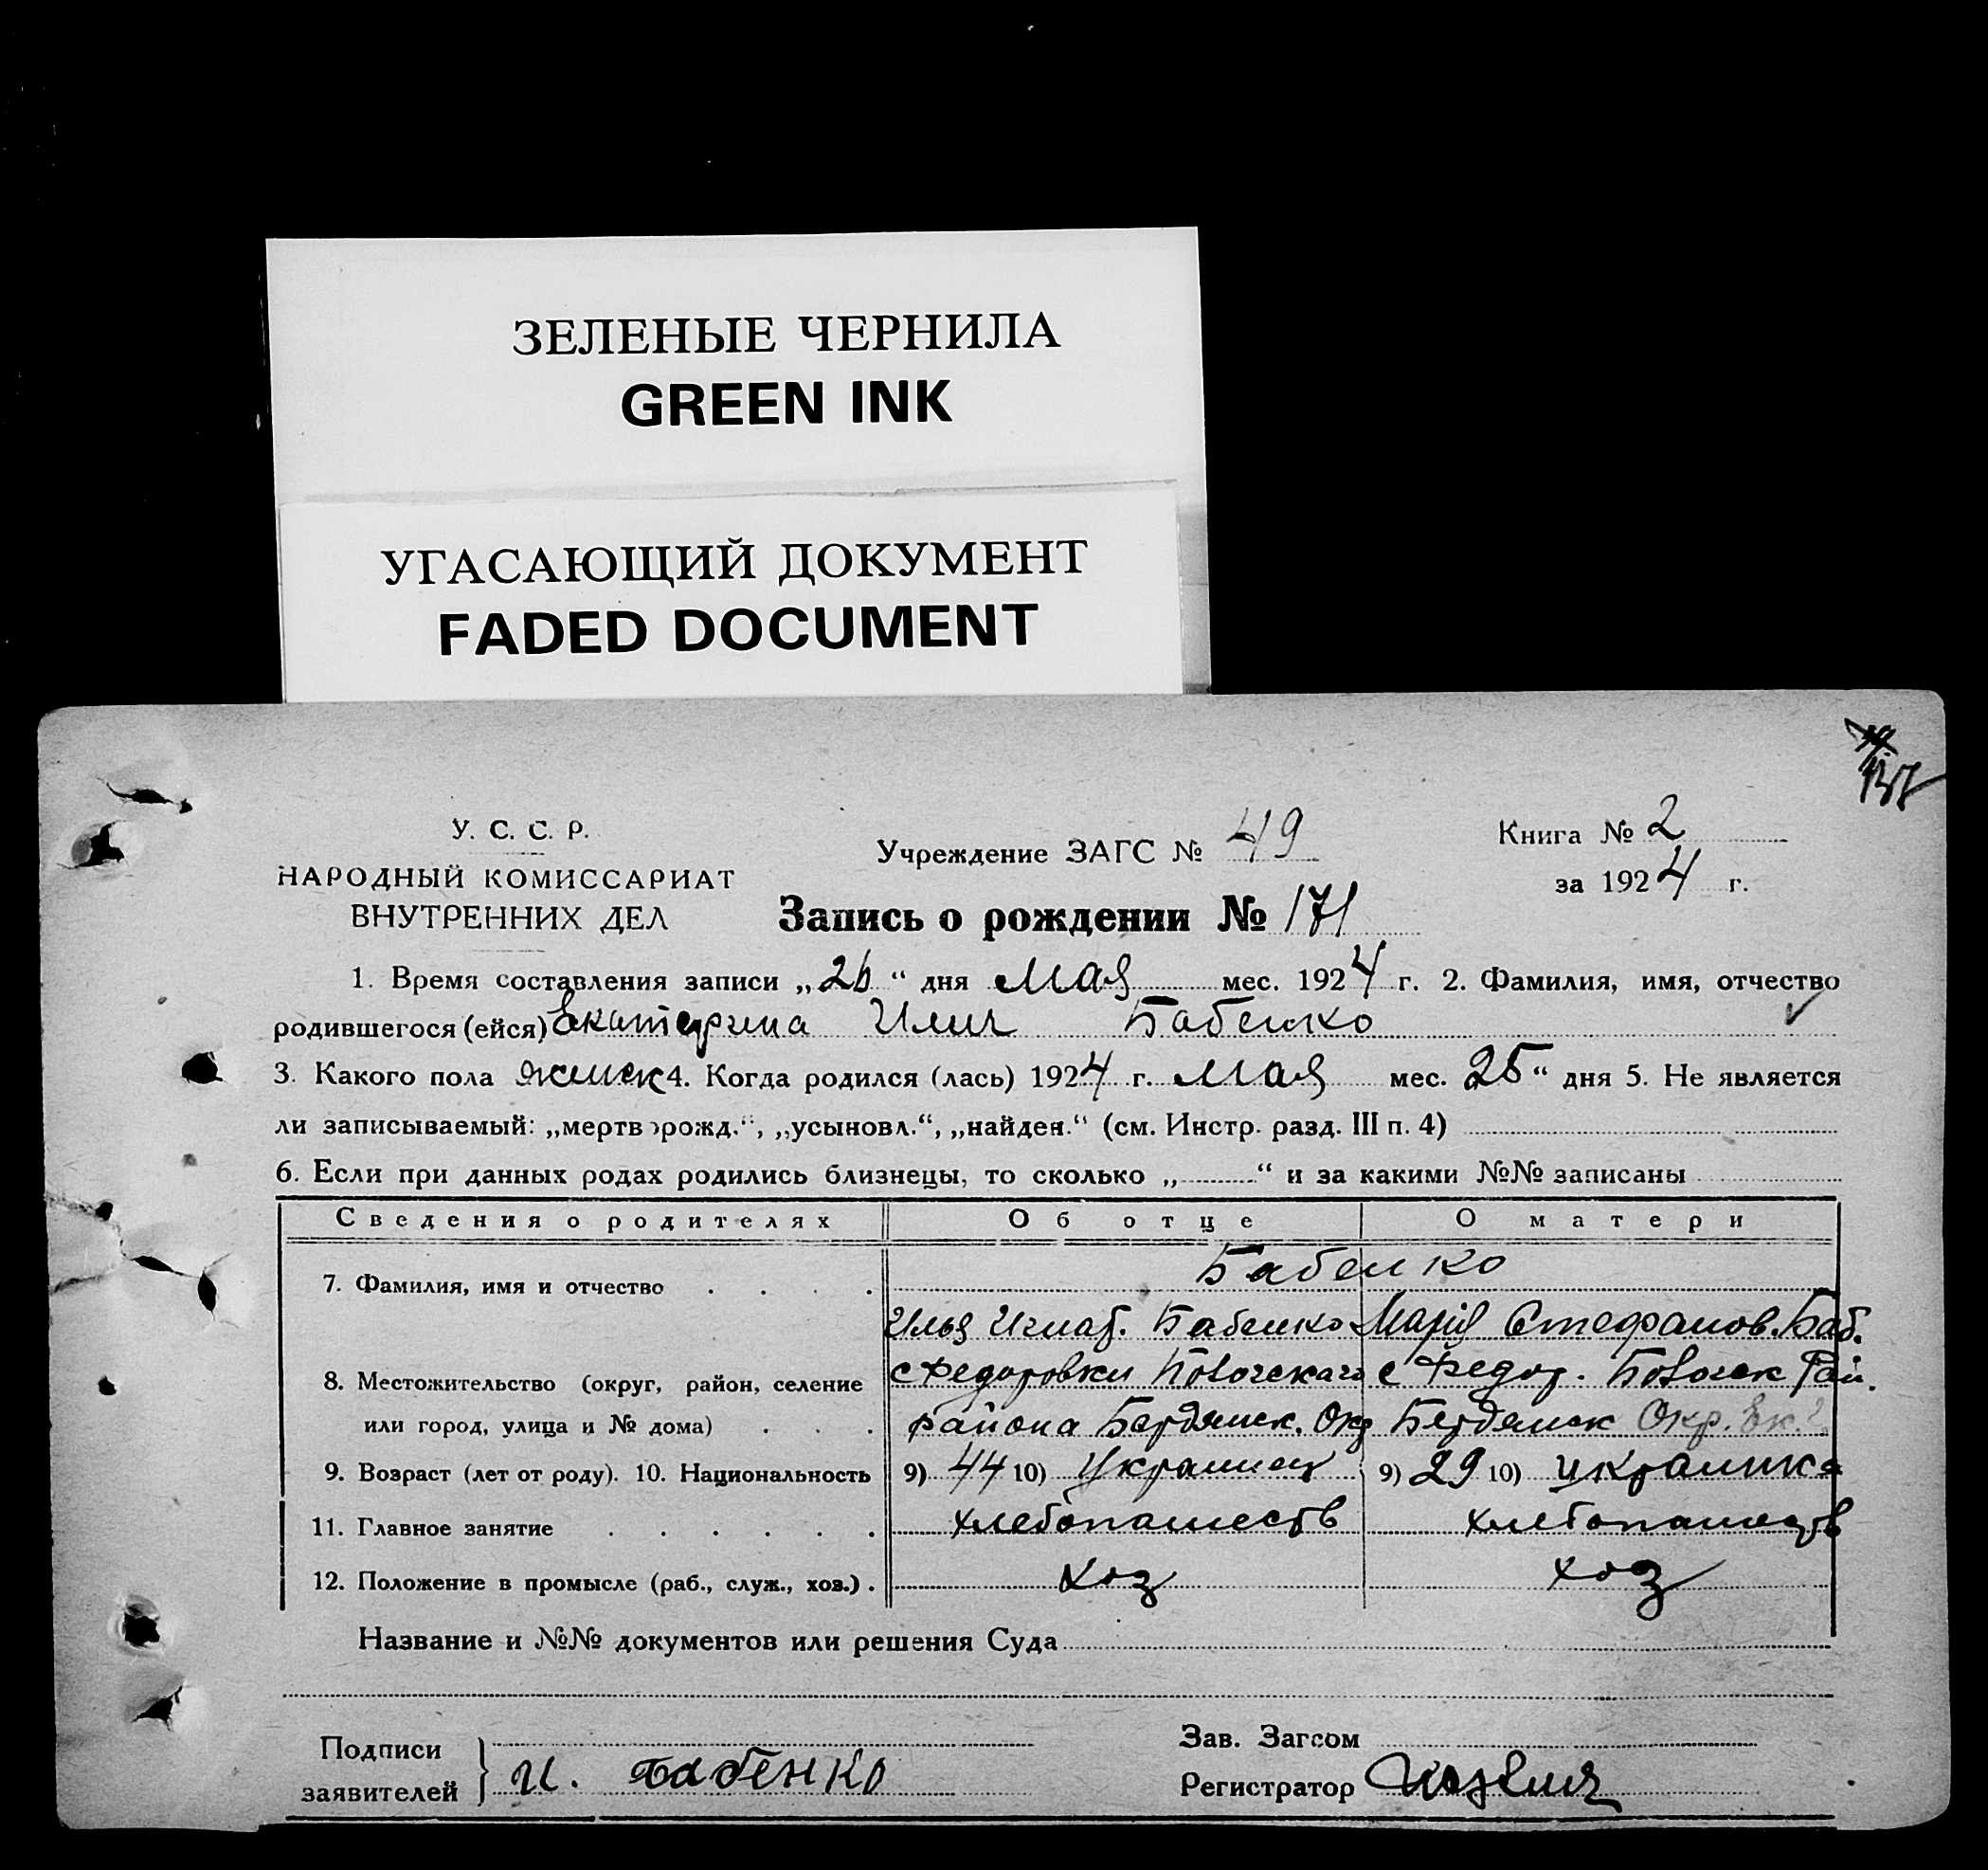 ЗЕЛЕНЫЕ ЧЕРНИЛА
GREEN INK
УГАСАЮЩИЙ ДОКУМЕНТ
FADED DOCUMENT
137
У. С. С. Р.
НАРОДНЫЙ КОМИССАРИАТ
ВНУТРЕННИХ ДЕЛ
Учреждение ЗАГС № 49
Книга № 2
за 1924 г.
Запись о рождении № 171
1. Время составления записи „26“ дня Мая мес. 1924 г. 2. Фамилия, имя, отчество
родившегося (ейся) Екатерина Илич Бабенко
3. Какого пола женск 4. Когда родился (лась) 1924 г. Мая мес. 25“ дня 5. Не является
ли записываемый: „мертворожд.“, „усыновл.“, „найден.“ (см. Инстр. разд. III п. 4)
6. Если при данных родах родились близнецы, то сколько „ “ и за какими №№ записаны
Сведения о родителях Об отце О матери
7. Фамилия, имя и отчество Бабенко
Илья Игнат. Бабенко Марія Стефанов. Баб.
8. Местожительство (округ, район, селение с Федоровки с Федор. Рай.
или город, улица и № дома) района Бердянск. Окр Бердянск Окр.
9. Возраст (лет от роду). 10. Национальность 9) 44 10) Украинец 9) 29 10) украинка
11. Главное занятие хлебопашеств хлебопашеств
12. Положение в промысле (раб., служ., хоз.) хоз хоз
Название и №№ документов или решения Суда
Подписи заявителей И. Бабенко
Зав. Загсом
Регистратор